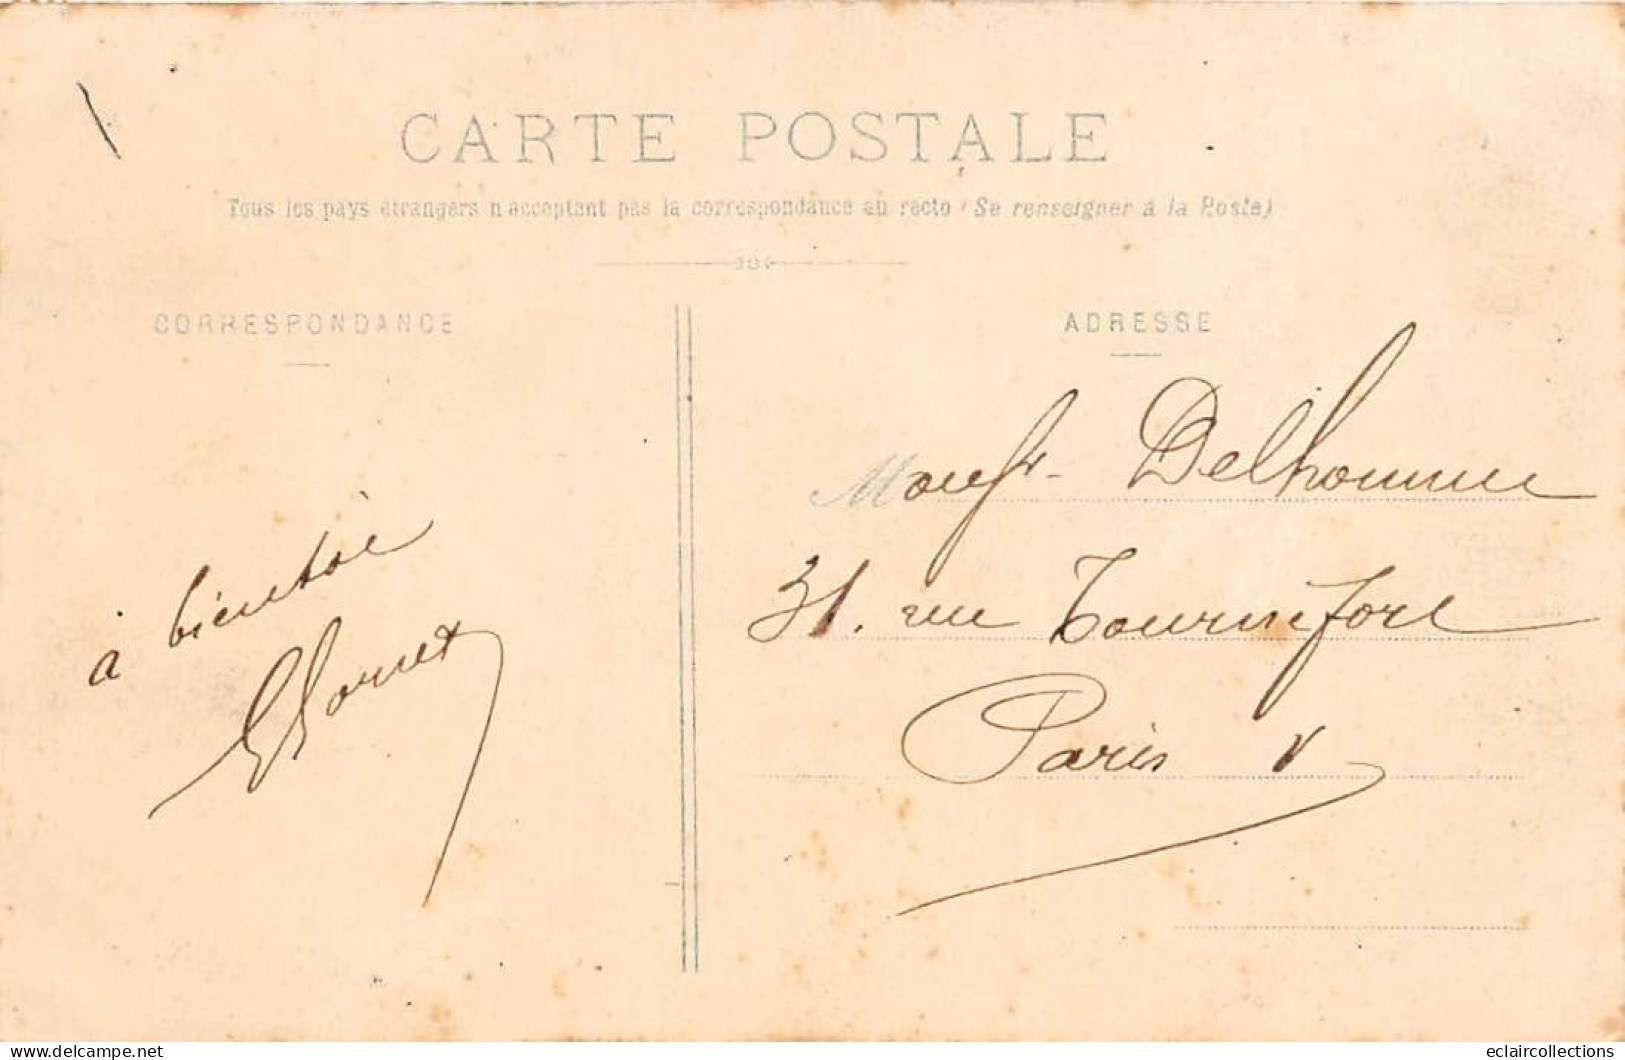 CARTE POSTALE
Tous les pays étrangers n'acceptent pas la correspondance au recto (Se renseigner à la Poste)
CORRESPONDANCE
ADRESSE
Delhomme
31. rue Tournefort
Paris V
à bientôt
delcampe.net
eclaircollections